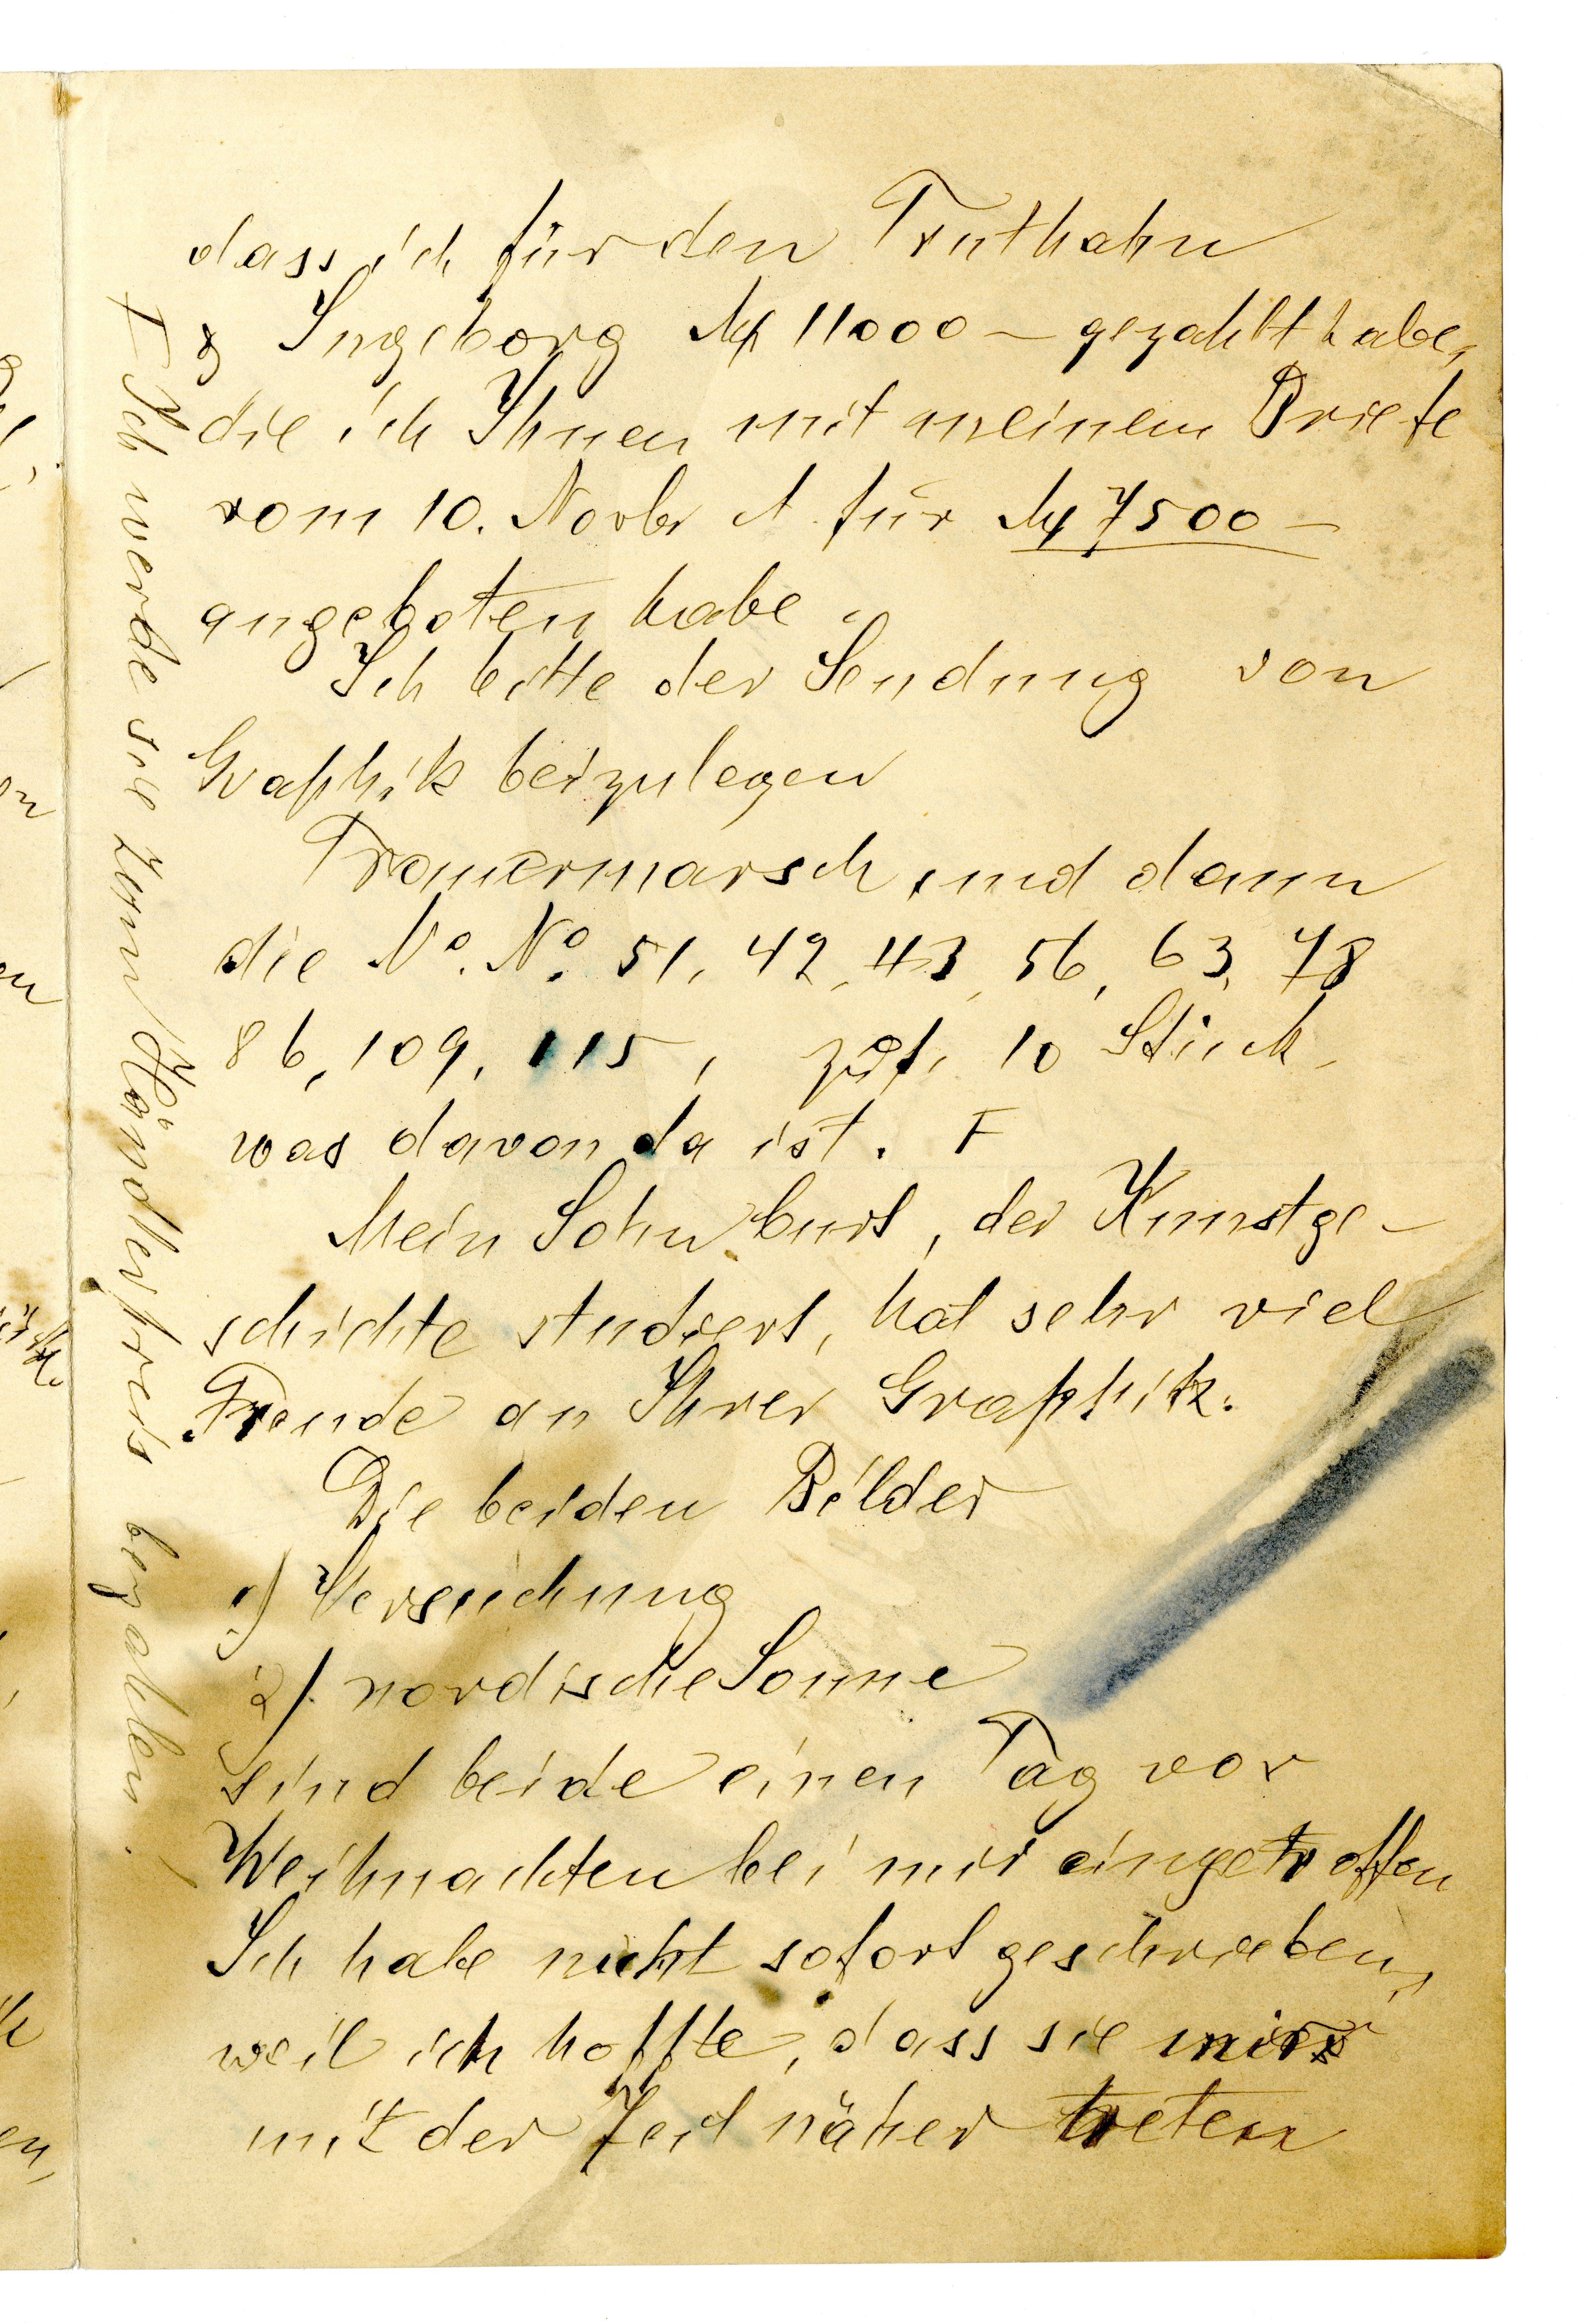 dass ich für den Truthahn
& Ingeborg M 11000 – gezahlt habe,
die ich Ihnen mit meinem Briefe
vom 10. Novbr für M 7500 –
angeboten habe.
Ich bitte der Sendung von
Graphik beizulegen
Trauermarsch und dann
die No. No. 51, 42, 43, 56, 63, 78
86, 109, 115, zus. 10 Stück,
was davon da ist. F
Mein Sohn Curt, der Kunstge-
schichte studiert, hat sehr viel
Freude an Ihrer Graphik.
Die beiden Bilder
1) Versuchung
2) nordische Sonne
sind beide einen Tag vor
Weihnachten bei mir eingetroffen
Ich habe nicht sofort geschrieben,
weil ich hoffte, dass sie mir
mit der Zeit näher treten
F Ich werde sie zum Händlerpreis bezahlen.